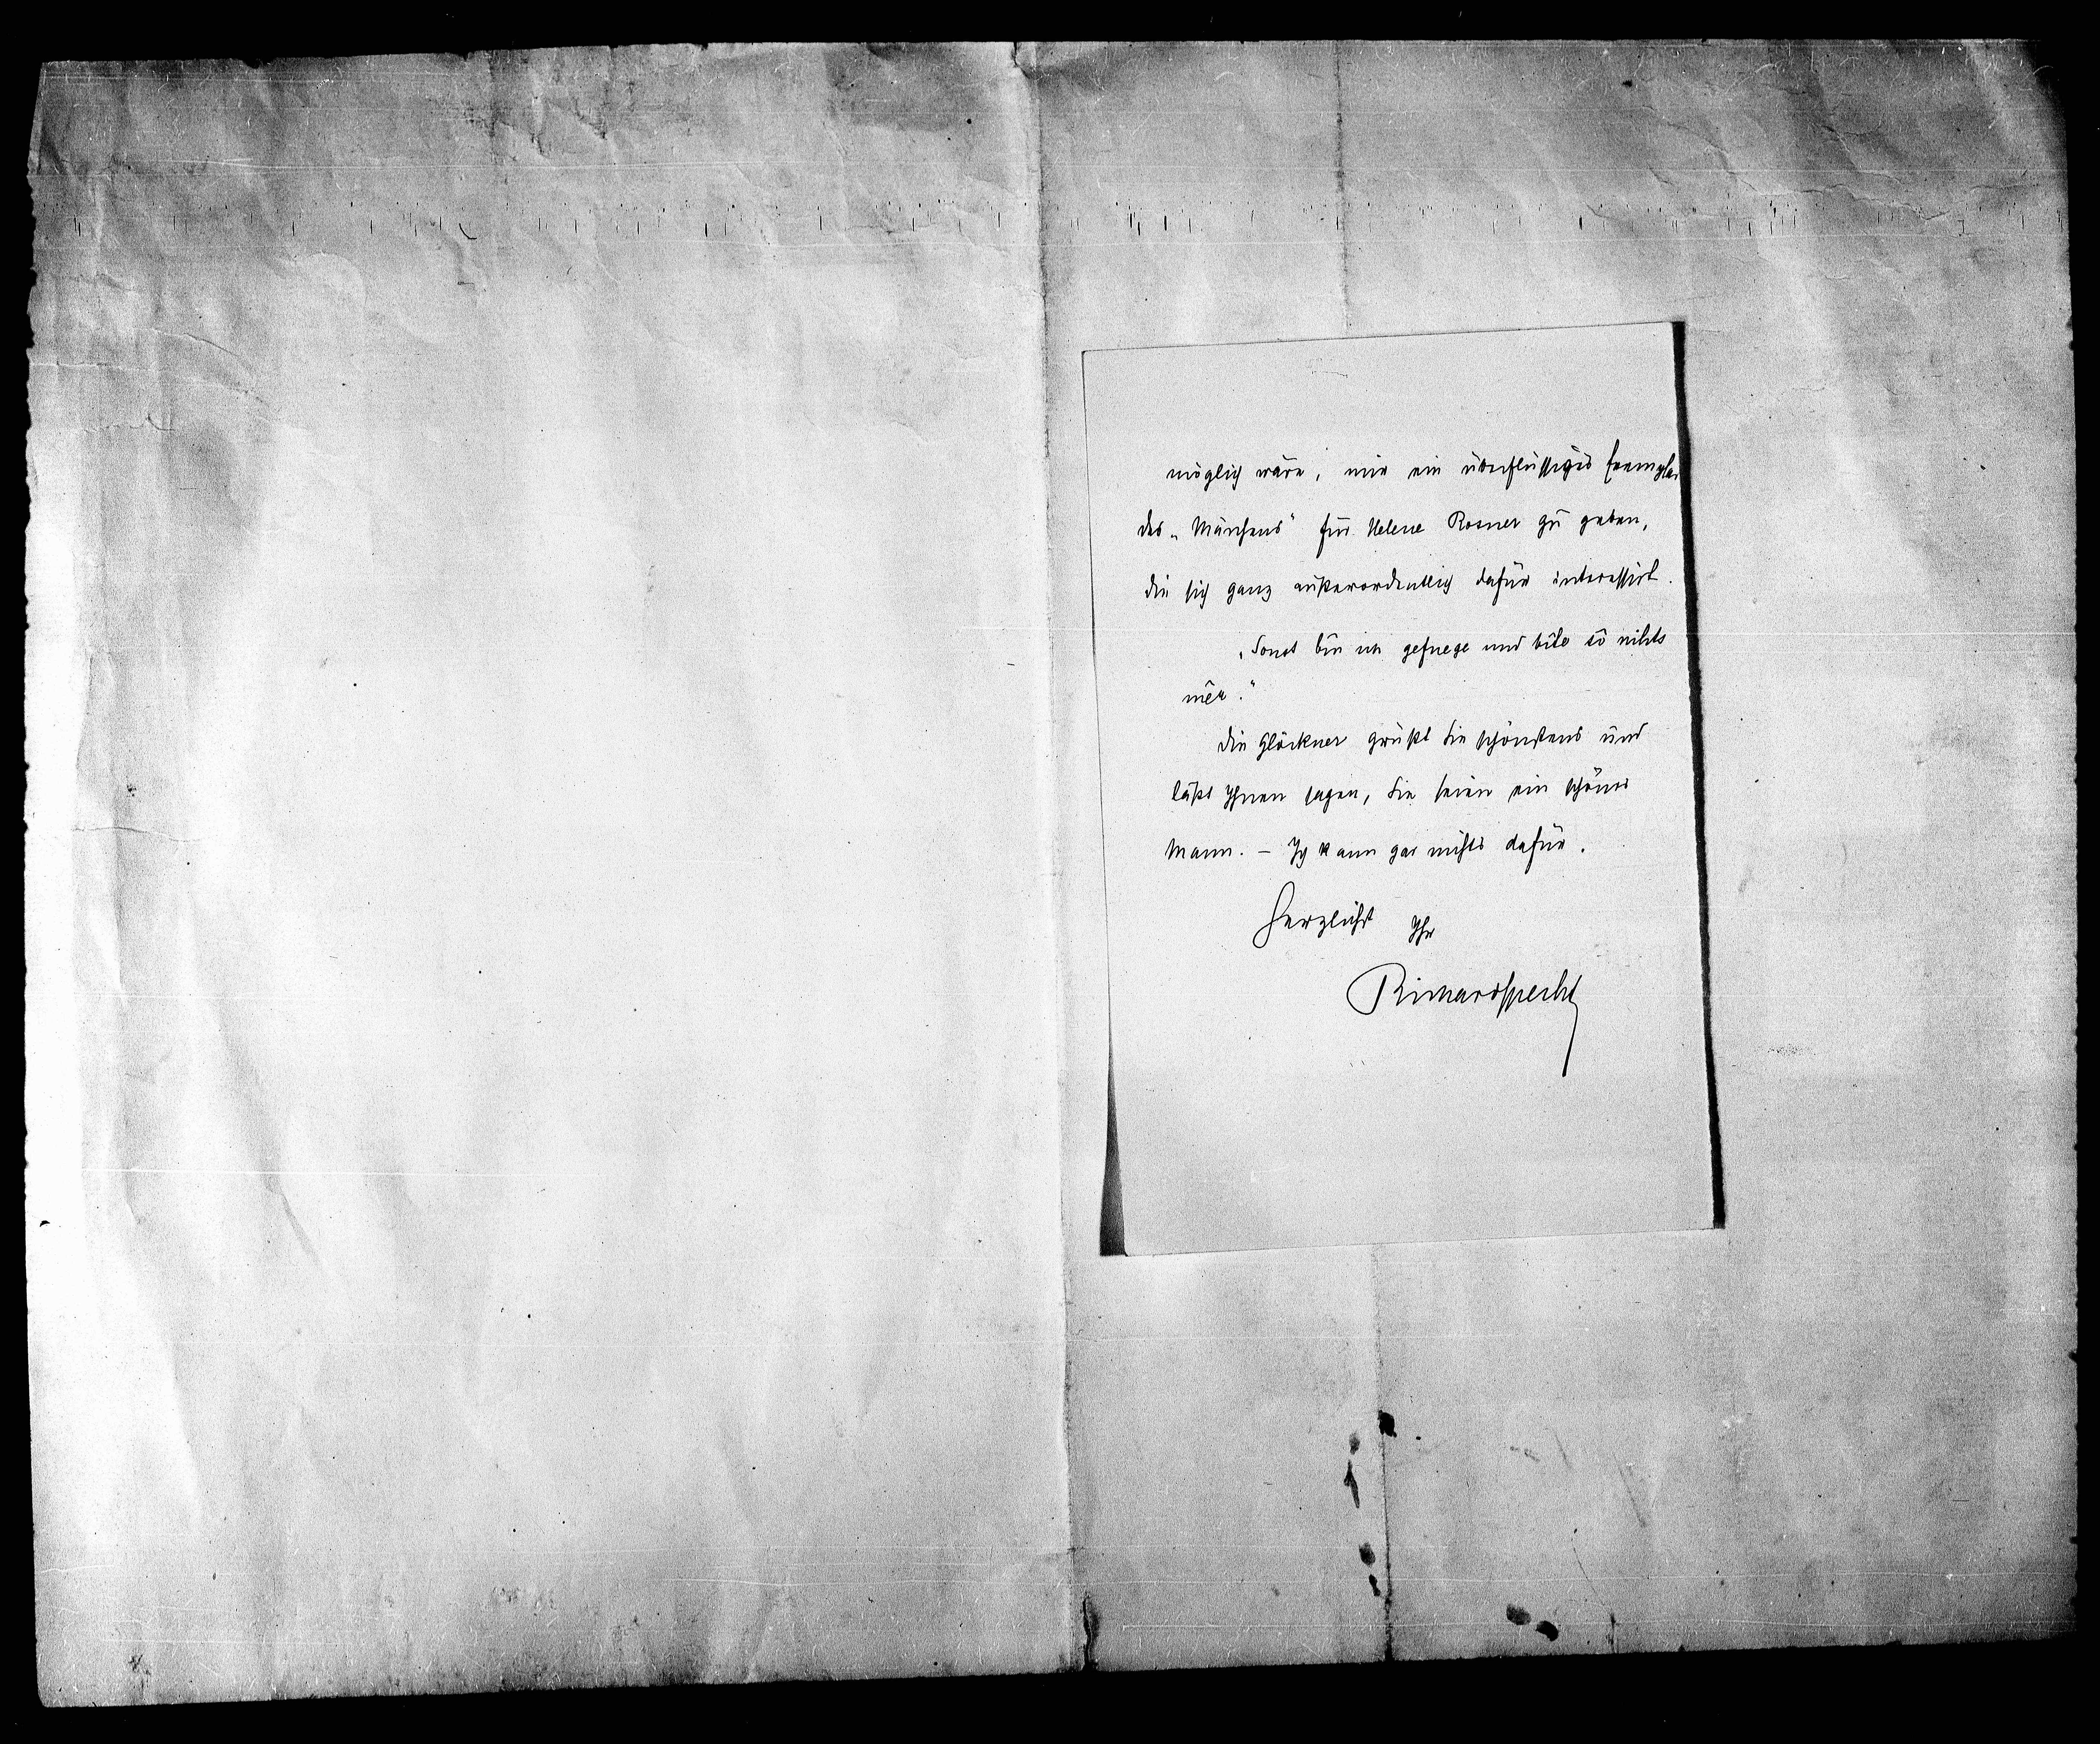 möglich wäre, mir ein überflüssiges Exemplar
des „Märchens“ für Helene Rosner zu geben,
die sich ganz außerordentlich dafür interessirt.
„Sonst bin ich gefuege und bite sô nihts
mêr.“
Die Glöckner grüßt Sie schönstens und
läßt Ihnen sagen, Sie seien ein schöner
Mann. – Ich kann gar nichts dafür.
Herzlichst Ihr
RichardSpecht